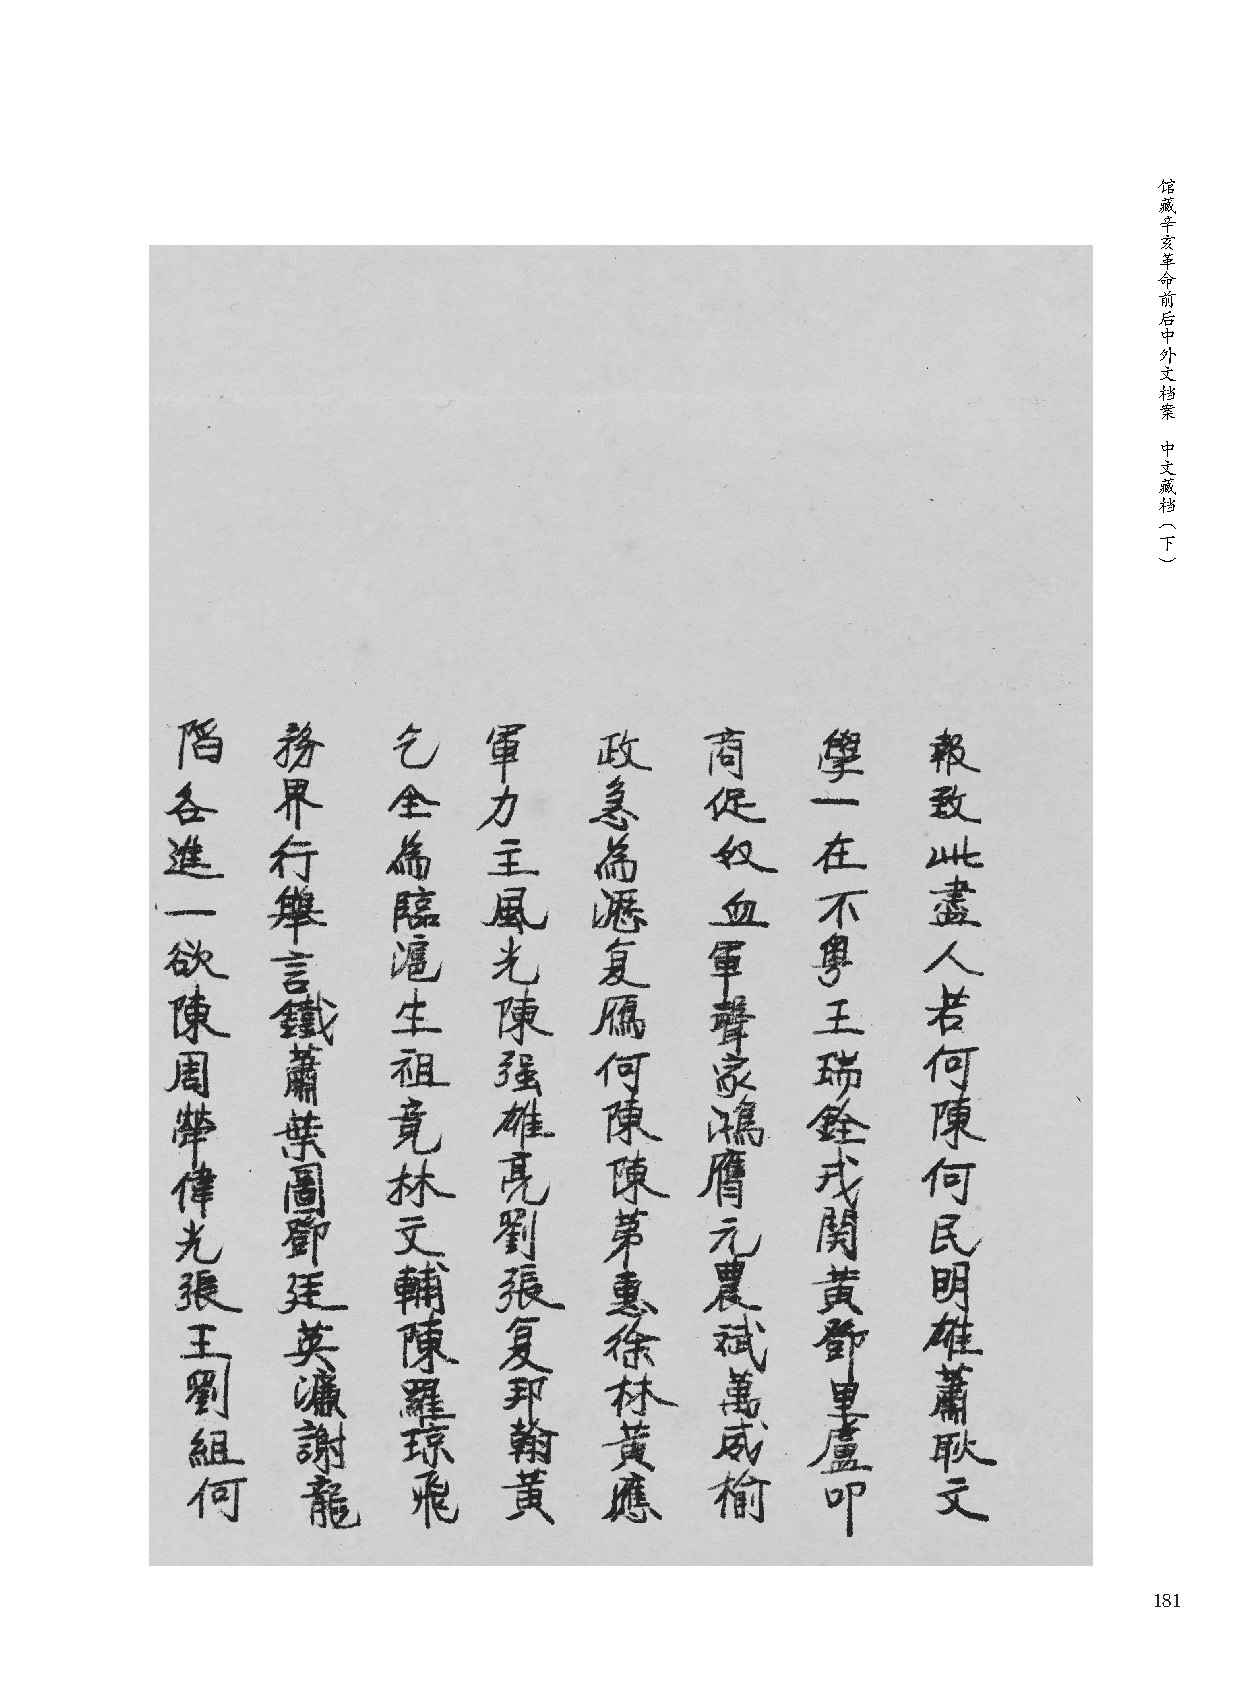 馆藏辛亥革命前后中外文档案 中文藏档（下）
報致此盡人若何陳何民明雄蕭耿文
學一在不粤王瑞銓戎関黄鄧里盧叩
商促奴血軍聲家鴻膺元農斌萬威榆
政急為濕复雁何陳陳第惠徐林黄應
軍力主風光陳强雄亮劉張复邦翰黄
乞全為臨滬生祖竟林文輔陳羅琼飛
務界行舉言鐵蕭葉圖鄧廷英濂謝龍
滔各進一欲陳周犖偉光張王劉組何
181